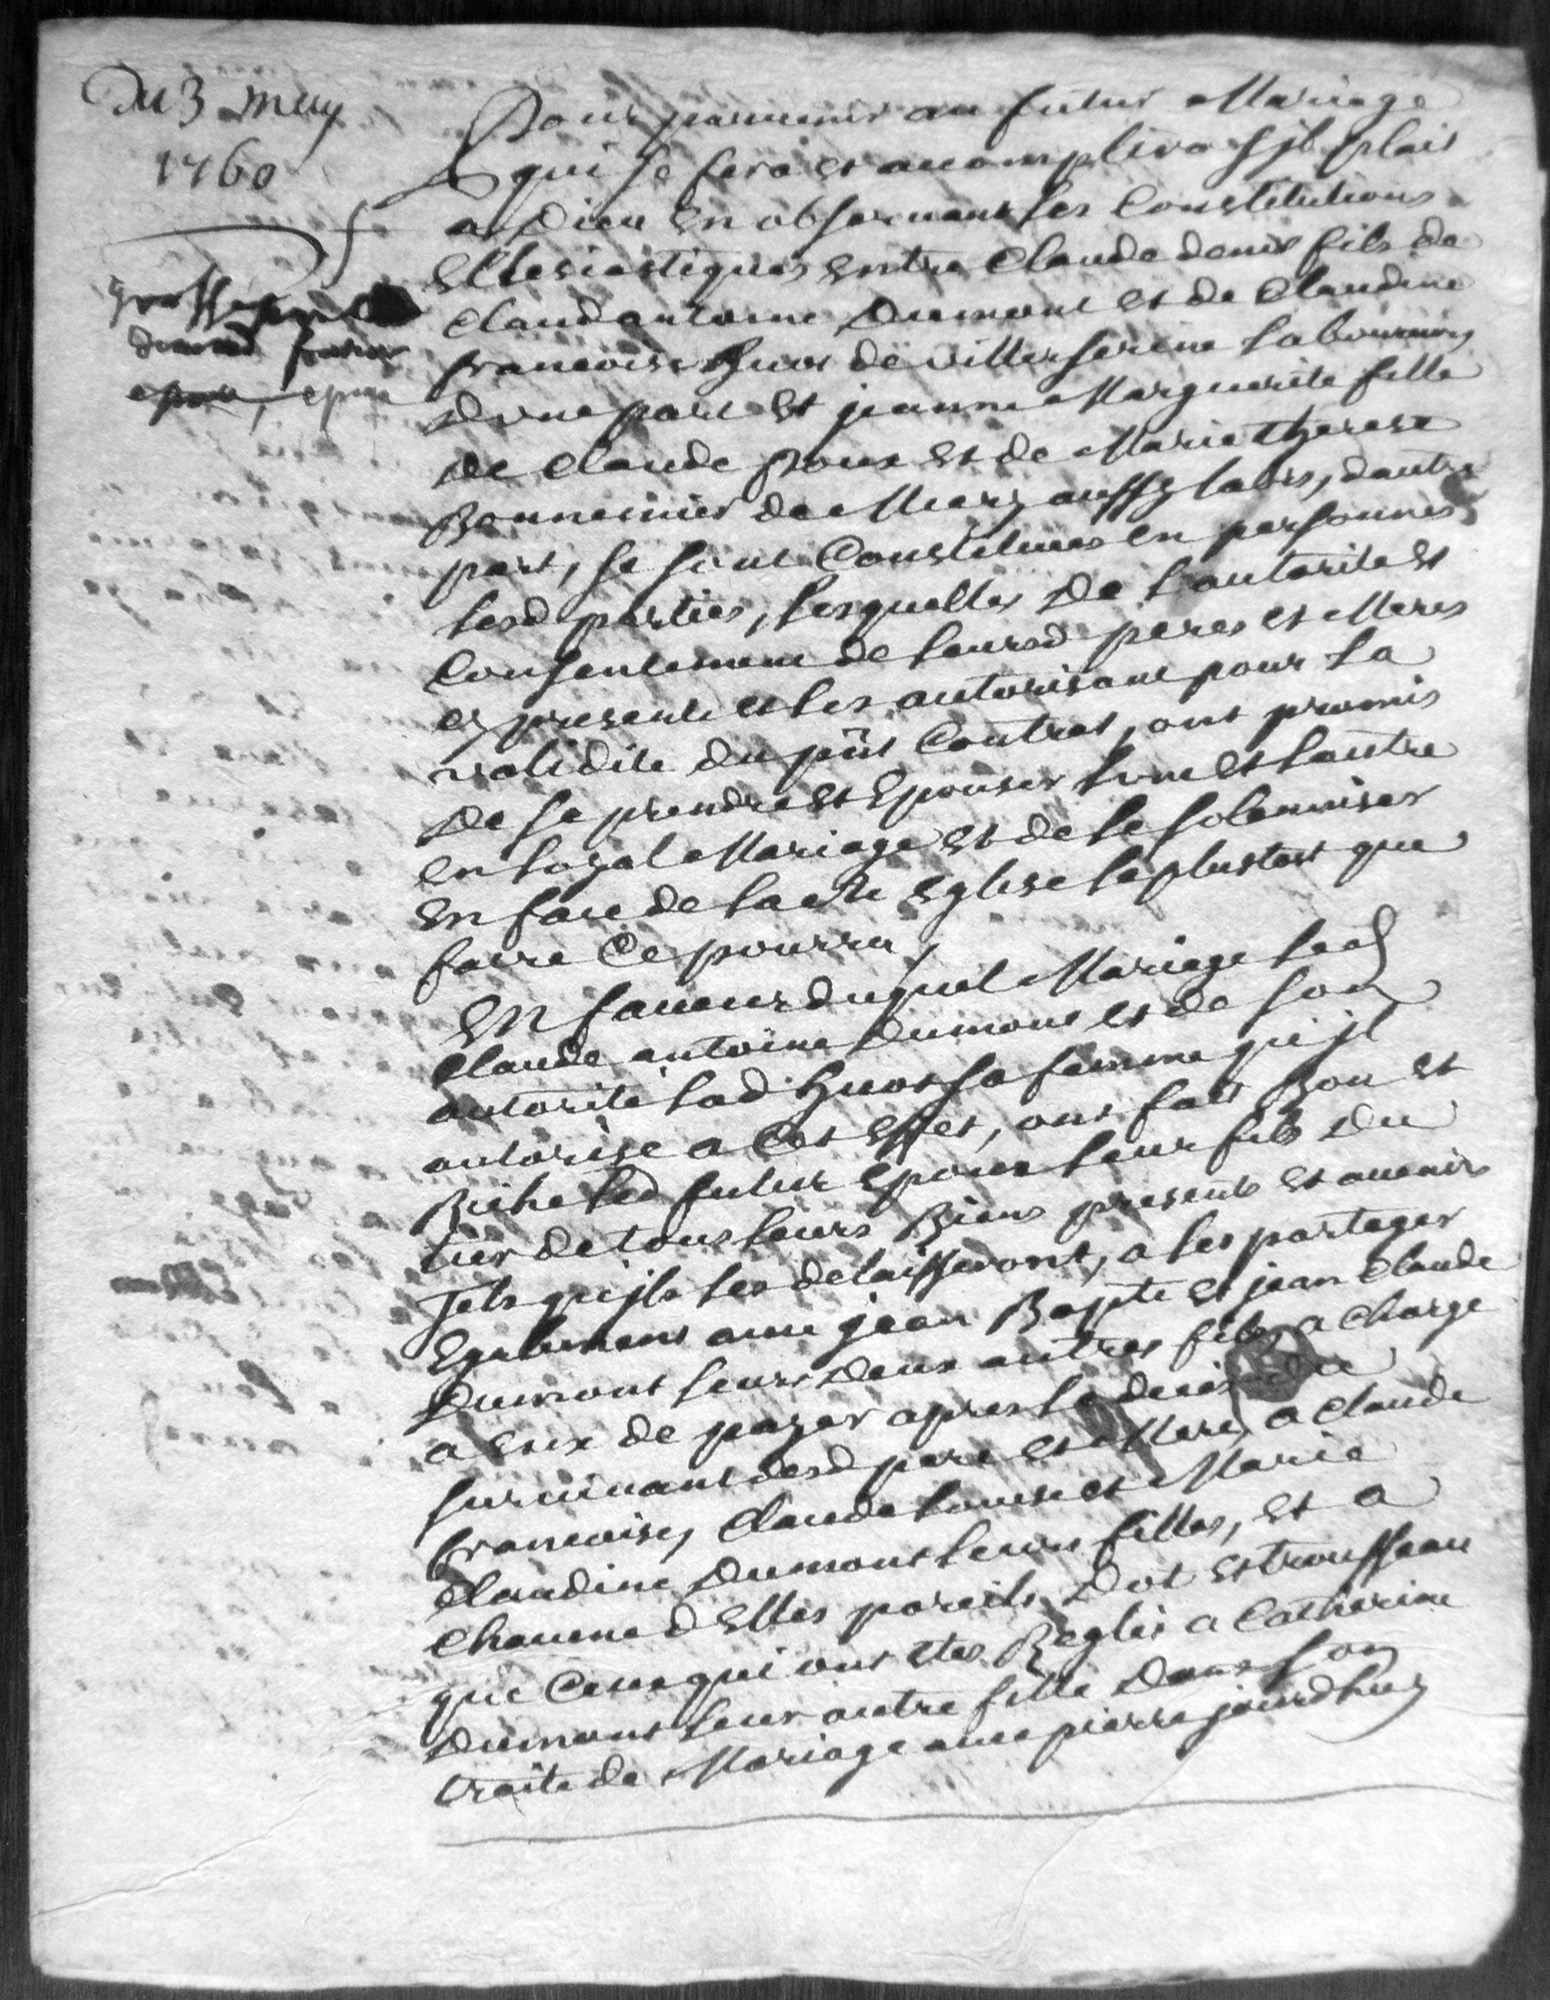 Du 3 may
1760
grossé pour
dumont futur
epoux, epoux
Pour parvenir au futur Mariage
qui se fera et accomplira s'jl plait
a Dieu en observant les Constitutions
Ecclesiastiques entre Claude denis fils de
Claudantoine Dumont et de Claudine
francoise huot de villerserine laboureurs
d'vne part et jeanne Marguerite fille
de Claude roux et de Marie therese
Bonnemier de Miery aussy labrs, dautre
part, se sont Constitués en personnes
lesd parties, lesquelles de l'autorité et
Consentement de leursd peres et Meres
cy presents et les autorisant pour la
validité du pñt Contrat, ont promis
de se prendre et Epouser lvne et lautre
en loyal Mariage et de le solemniser
en face de la ste Eglise le plustost que
faire Ce pourra,
En faveur duquel Mariage led
Claude antoine Dumont et de son
autorité lad huot sa femme qu'jl
autorise a Cet effet, ont fait Bon et
Riche led futur Epoux leur fils du
tier de tous leurs Biens presents et avenir
Tels qu'jls les delaisseront, a les partager
Egalement avec jean Bapte et jean Claude
Dumont leurs deux autres fils, a Charge
a eux de payer apres le deces du
survivant desd pere et Mere, a Claude
francoise, Claude louise et Marie
Claudine Dumont leurs filles, et a
Chacune d'Elles pareils Dot et trousseau
que Ceux qui ont etes Reglés a Catherine
Dumont leur autre fille dans son
traité de Mariage avec pierre jourdhuy